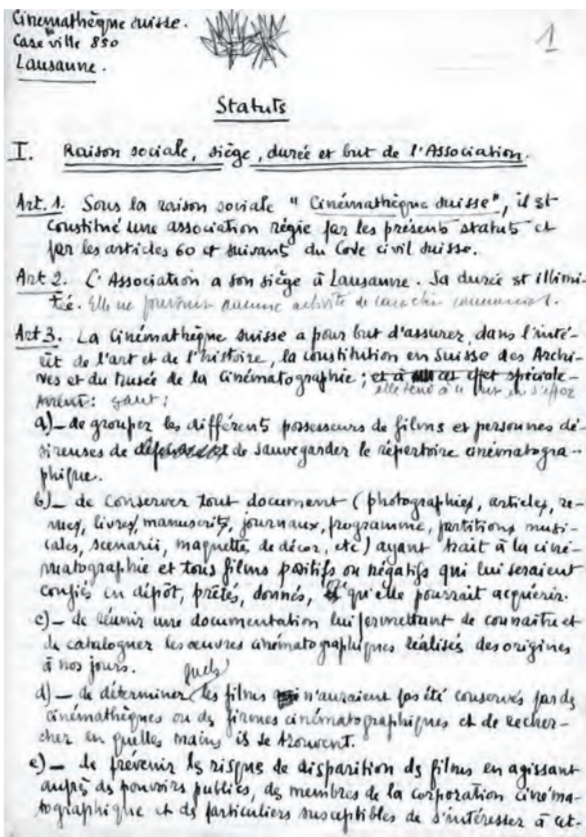 Cinémathèque suisse.
Case ville 850
Lausanne.
1
Statuts
I. Raison sociale, siège, durée et but de l'Association.
Art. 1. Sous la raison sociale "Cinémathèque suisse", il est
constitué une association régie par les présents statuts et
par les articles 60 et suivants du Code civil suisse.
Art 2. L'Association a son siège à Lausanne. Sa durée est illimi-
tée. Elle ne poursuit aucune activité de caractère commercial.
Art 3. La Cinémathèque suisse a pour but d'assurer, dans l'inté-
rêt de l'art et de l'histoire, la constitution en Suisse des Archi-
ves et du Musée de la Cinématographie; et à cet effet spéciale-
elle tend à ce but en s'effor
ment: çant:
a) — de grouper les différents possesseurs de films et personnes dé-
sireuses de de sauvegarder le répertoire cinématogra-
phique.
b) — de conserver tout document (photographies, articles, re-
vues, livres, manuscrits, journaux, programme, partitions musi-
cales, scenarii, maquettes de décor, etc) ayant trait à la ciné-
matographie et tous films positifs ou négatifs qui lui seraient
confiés en dépôt, prêtés, donnés, qu'elle pourrait acquérir.
c) — de réunir une documentation lui permettant de connaître et
de cataloguer les œuvres cinématographiques réalisés des origines
à nos jours.
quels
d) — de déterminer les films n'auraient pas été conservés par des
cinémathèques ou des firmes cinématographiques et de recher-
cher en quelles mains ils se trouvent.
e) — de prévenir les risques de disparition des films en agissant
auprès des pouvoirs publics, des membres de la corporation cinéma-
tographique et des particuliers susceptibles de s'intéresser à cet-